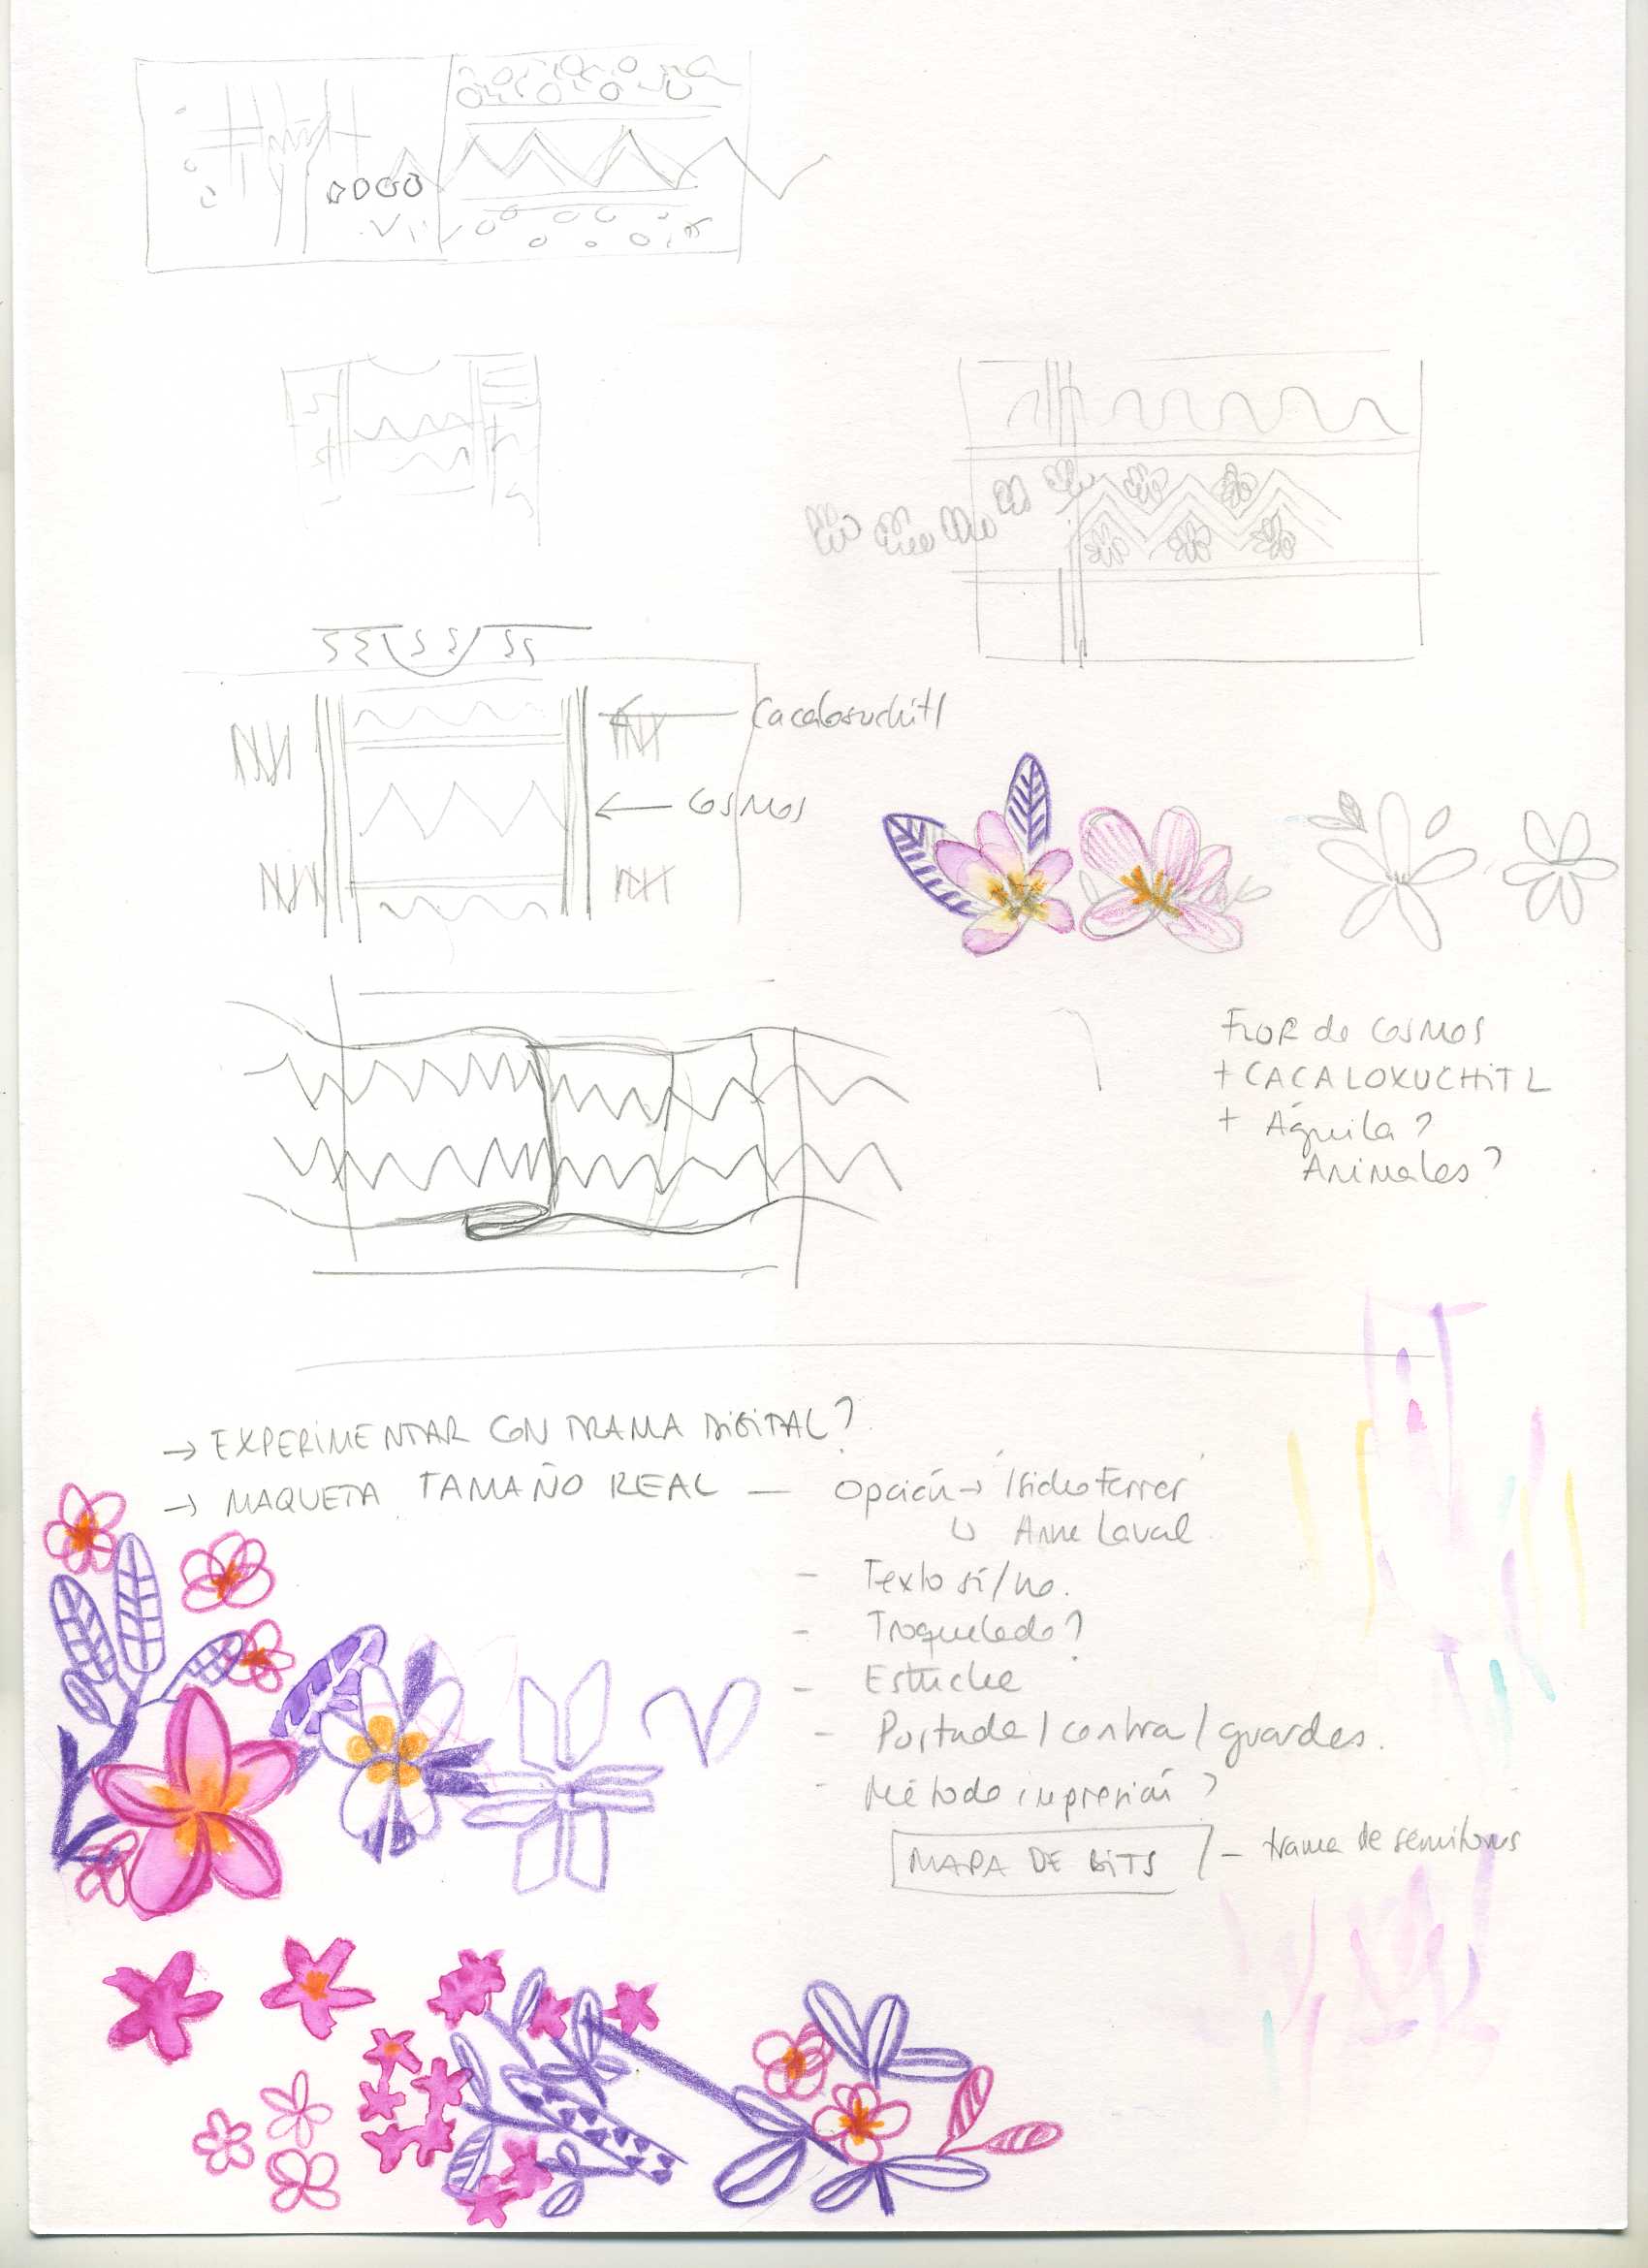 Cacaloxuchitl
COSMOS
FLOR de COSMOS
+ CACALOXUCHITL
+ Águila?
Animales?
→ EXPERIMENTAR CON TRAMA DIGITAL?
→ MAQUETA TAMAÑO REAL — Opción → Isidro Ferrer
↳ Anne Laval
- Texto sí/no.
- Troquelado?
- Estuche
- Portada/contra/guardas.
- Método impresión?
MAPA DE BITS / - trama de semitonos